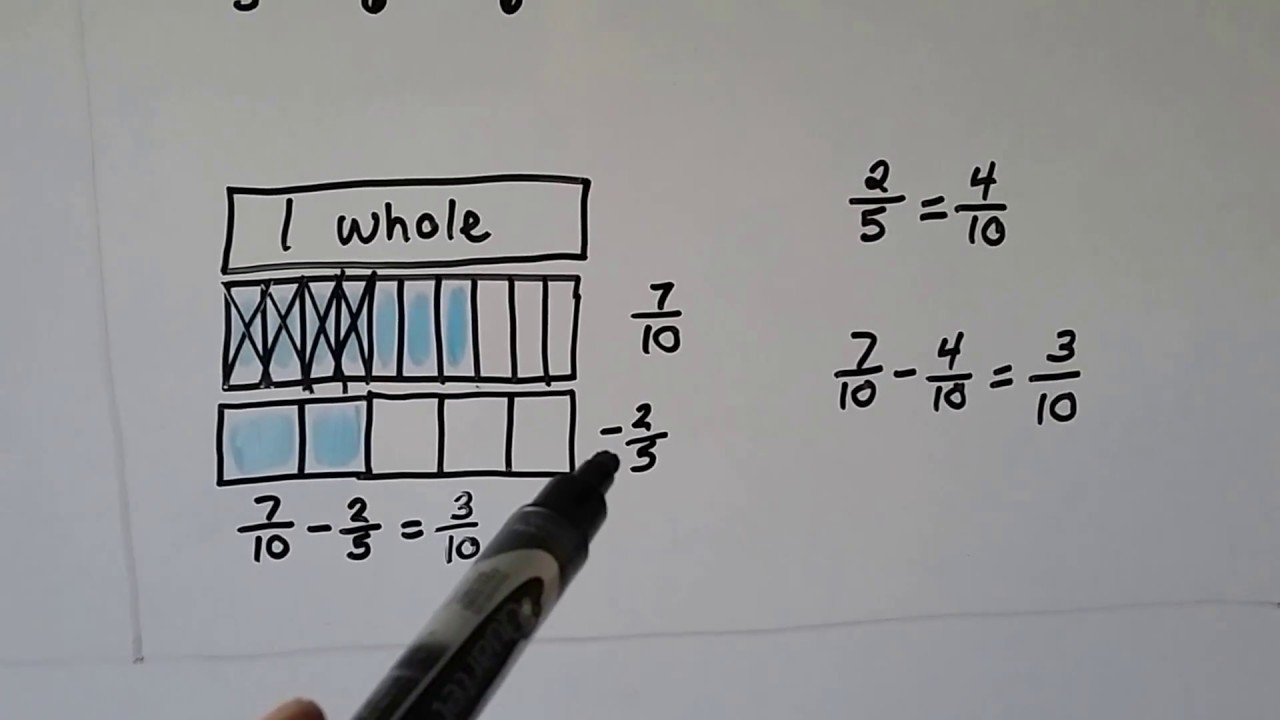 1 whole
7/10
- 2/5
7/10 - 2/5 = 3/10
2/5 = 4/10
7/10 - 4/10 = 3/10